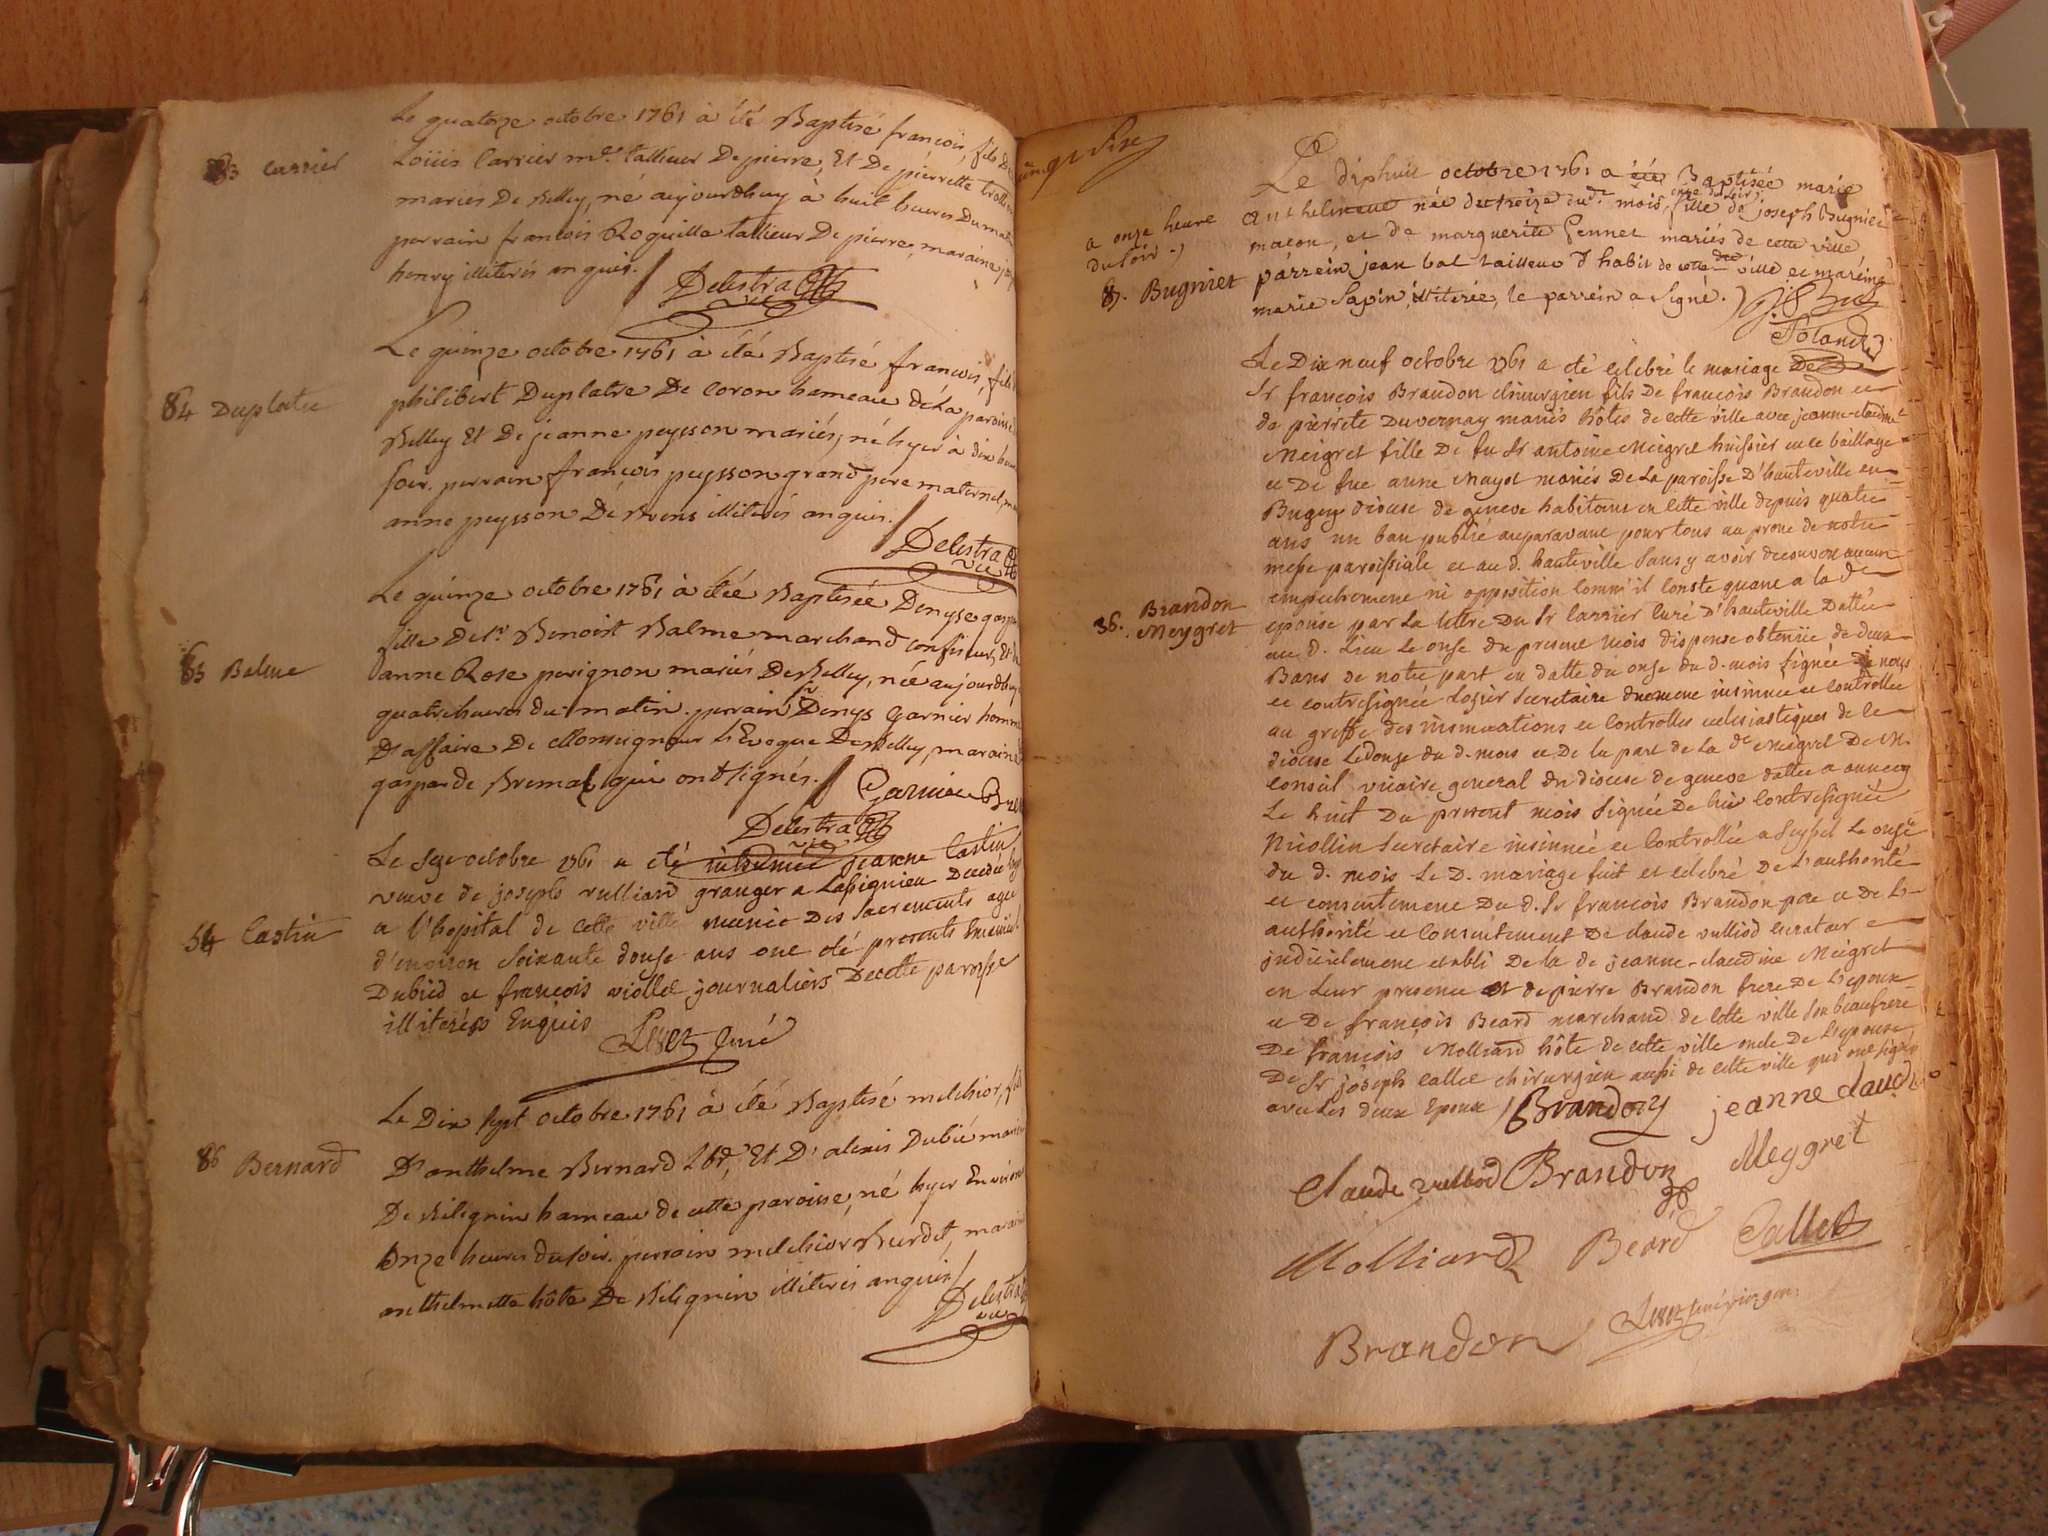 Le quatorze octobre 1761 à été Baptisé francois, fils De
83 Carrier
Loüis Carrier md tallieur De pierre, Et De pierrette
mariés De Belley, né aujourdhuy à huit heures Du matin
perrain francois Roquille tallieur De pierre, maraine
henry illiterés enquis.
Delestra
vic
Le quinze octobre 1761 à été Baptisé francois, fils
84 Duplatre
philibert Duplatre De Coron hameau de La paroisse
Belley Et De jeanne peysson mariés, né hyer à dix heures
soir. perrain francois peysson grand pere maternel,
anne peysson De Brens illiterés enquis.
Delestra
vic
Le quinze octobre 1761 à étée Baptisée Denyse
fille De Sr Benoist Balme marchand confiseur, Et
85 Balme
anne Rose perignon mariés De Belley, née aujourdhuy
quatre heures du matin. perrain Sr Denys Garnier homme
D'affaire De Monseigneur L'Eveque De Belley, maraine
gasparde Bremal qui ont signés.
Garnier
Delestra
vic
Le seze octobre 1761 a été inhumée jeanne Castin
veuve de joseph rulliard granger a Lassignieu Decedée hyer
54 Castin
a l'hopital de cette ville munie Des Sacrements agée
d'environ Soixante douse ans ont été presents
Dubied et françois viollet journaliers De cette paroisse
illiterés Enquis
Curé
Le Dix sept octobre 1761 à été Baptisé melchior, fils
86 Bernard
D'anthelme Bernard Lbr, Et D'alexis Dubié mariés
De Bilignin hameau de cette paroisse, né hyer Environ
Onze heures du soir. perrain melchior Burdet, maraine
anthelmette hôte De Bilignin illiterés enquis
Delestra
vic
Le dixhuit octobre 1761 a été Baptisée marie
a onze heure
du soir
onze du soir
née du treize dud. mois, fille de joseph Bugniet
macon, et de marguerite Fennet mariés de cette ville
87. Bugniet
parrein jean bal tailleur d'habit de cette ville et mareine
marie Sapin, illiterée, le parrein a signé.
Le Dix neuf octobre 1761 a été celebré le mariage De
Sr françois Brandon chirurgien fils De francois Brandon et
de pierrete Duvernay mariés hôtes de cette ville avec jeanne claudine
Meigret fille De fu Sr antoine Meigret huissier en ce baillage
et De fue anne Mayot mariés De La paroisse D'hauteville en
Bugey diocese de geneve habitant en cette ville depuis quatre
ans un ban publié auparavant pour tous au prone de notre
messe paroissiale et aud. hauteville Sans y avoir decouvert aucun
empechement ni opposition comm'il conste quant a la de
36. Brandon
Meygret
epouse par La lettre Du Sr Carrier curé D'hauteville Dattée
aud. Lieu Le onse du present mois dispense obtenüe de deux
Bans de notre part en datte du onse du d. mois signée de nous
et contresignée Losier Secretaire duement insinuée et controllée
au greffe des insinuations et Controlles ecclesiastiques de ce
diocese Le douse du d. mois et De la part de La de Meigret De M.
Conseil vicaire general du diocese de geneve dattée a annecy
Le huit Du present mois signée De lui Contresignée
Nicollin Secretaire insinuée et Controllée a Seyssel Le onse
du d. mois Le D. mariage fait et celebré De L'authorité
et consentement Du d. Sr françois Brandon pere et De L'
authorité et Consentement De claude vulliod curateur
judicielement etabli De la de jeanne-claudine Meigret
en Leur presence et de pierre Brandon frere De L'epoux
et De françois Beard marchand de cette ville Son beaufrere
De françois Molliard hôte de cette ville oncle De L'epouse
De Sr joseph Callet chirurgien aussi de cette ville qui ont signés
avec Les deux Epoux
Brandon
jeanne claudi
Meygret
Claude vulliod
Brandon
Molliard
Beard
Callet
Brandon